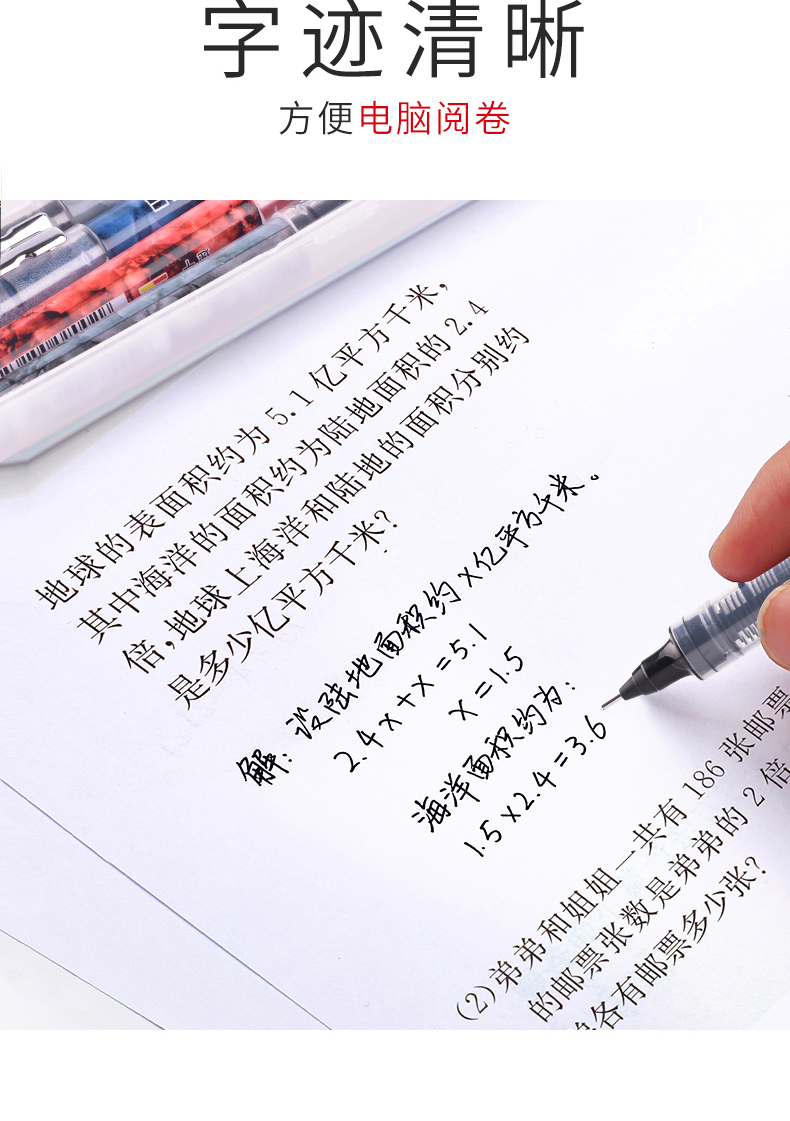 字迹清晰
方便电脑阅卷
地球的表面积约为 5.1 亿平方千米，
其中海洋的面积约为陆地面积的 2.4
倍，地球上海洋和陆地的面积分别约
是多少亿平方千米？
解：设陆地面积约x亿平方千米。
2.4x+x=5.1
x=1.5
海洋面积约为：
1.5×2.4=3.6
(2)弟弟和姐姐一共有 186 张邮票
的邮票张数是弟弟的 2 倍
各有邮票多少张？